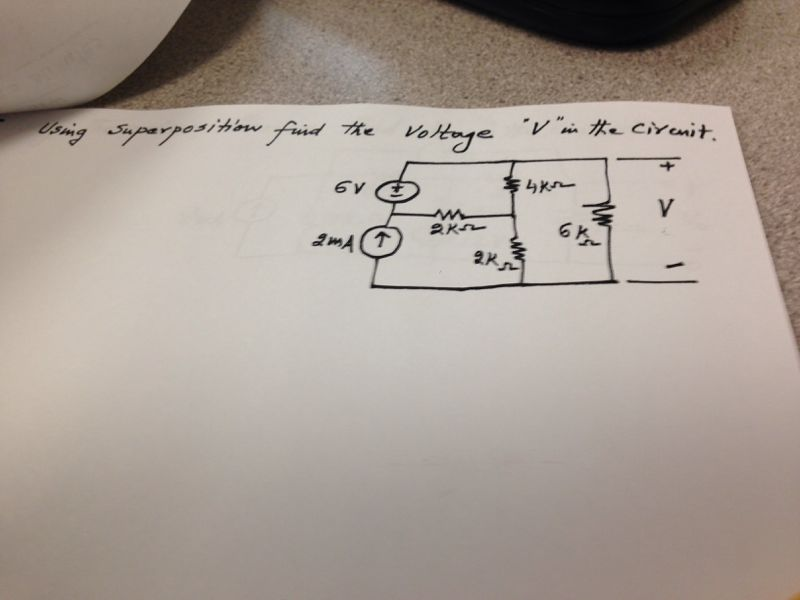 Using Superposition find the Voltage "V" in the Circuit.
6V
4KΩ
+
2KΩ
V
2mA
6K
Ω
2K
Ω
-